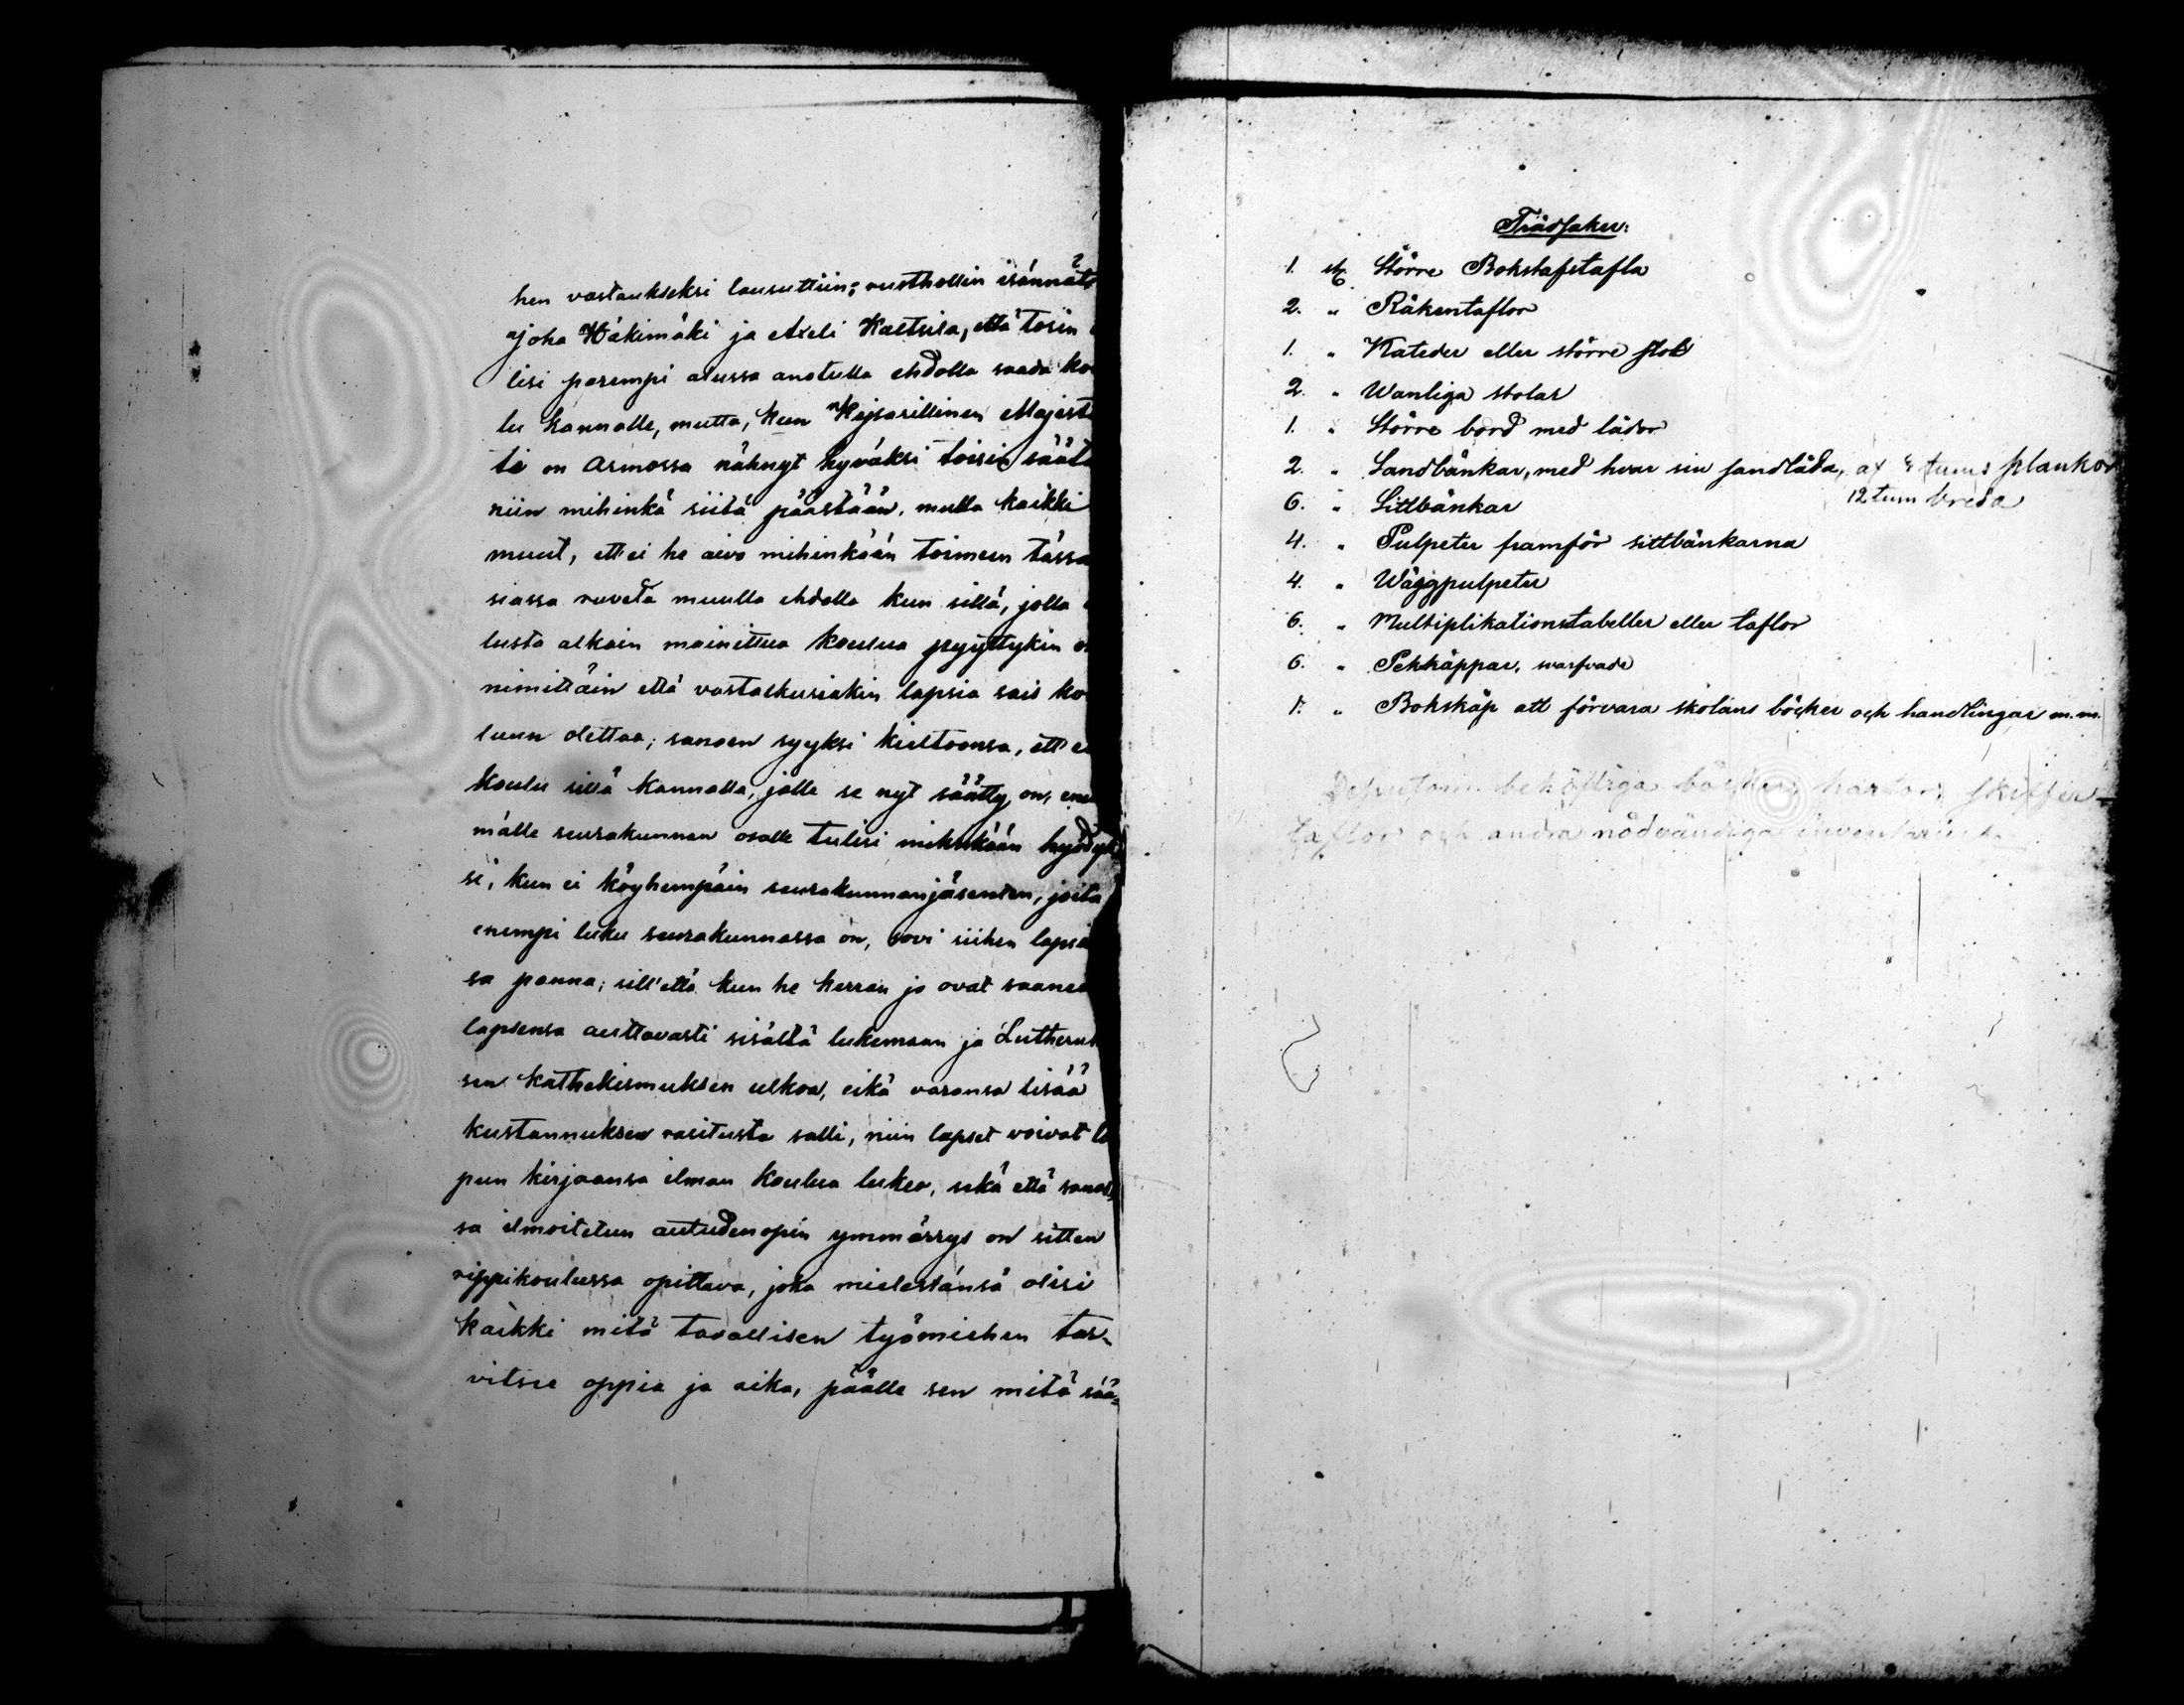 hen vastaukseksi lausuttiin; rusthollin isännät
Joha Wäkimäki ja Axeli Kaetsila, että tosin
lisi parempi alussa anotulla ehdolla saada ko
lu kannalle, mutta, kun Kejsarillinen Majest
ti on Armossa nähnyt hyväksi toisin säät
niin mihinkä siitä päästään. mutta kaikki
muut, ett'ei he aivo mihinkään toimeen tässä
siassa ruveta muulla ehdolla kun sillä, jolla
lusta alkain mainittua koulua pyyttykin o
nimittäin että vastaskusiakin lapsia sais ko
luun olettaa; sanoen syyksi kieltoonsa, ett'ei
koulu sillä kannalla, jolle se nyt säätty on, enem
mälle seurakunnan osalle tulisi mihinkään hyödyk
si, kun ei köyhempäin seurakunnanjäsenten, joita
enempi luku seurakunnassa on, sovi siihen lapsia
sa panna; sill'että kun he kerran jo ovat saanee
lapsensa auttavasti sisältä lukemaan ja Lutheruk
sen kathekismuksen ulkoa, eikä varansa lisää
kustannuksen rasitusta salli, niin lapset voivat lo
pun kirjaansa ilman koulua lukea, sekä että sanas
sa ilmoitetun autudenopin ymmärrys on sitten
rippikoulussa opittava, joka mielestänsä olisi
kaikki mitä tavallisen työmiehen tar-
vitsee oppia ja aika, päälle sen mitä sää-
Trädsaker:
1. st. Större Bokstafstafla
2. " Räkentaflor
1. " Kateder eller större stol
2. " Wanliga stolar
1. " Större bord med lådor
2. " Sandbänkar, med hvar sin sandlåda, af tums plankor
12 tum breda
6. " Sittbänkar
4. " Pulpeter framför sittbänkarna
4. " Wäggpulpeter
6. " Multiplikationstabeller eller taflor
6. " Pekkäppar, svarfvade
1. " Bokskåp att förvara skolans böcker och handlingar m.m.
Dessutom behöfliga böcker, kartor, skiffer-
taflor och andra nödvändiga inventarier